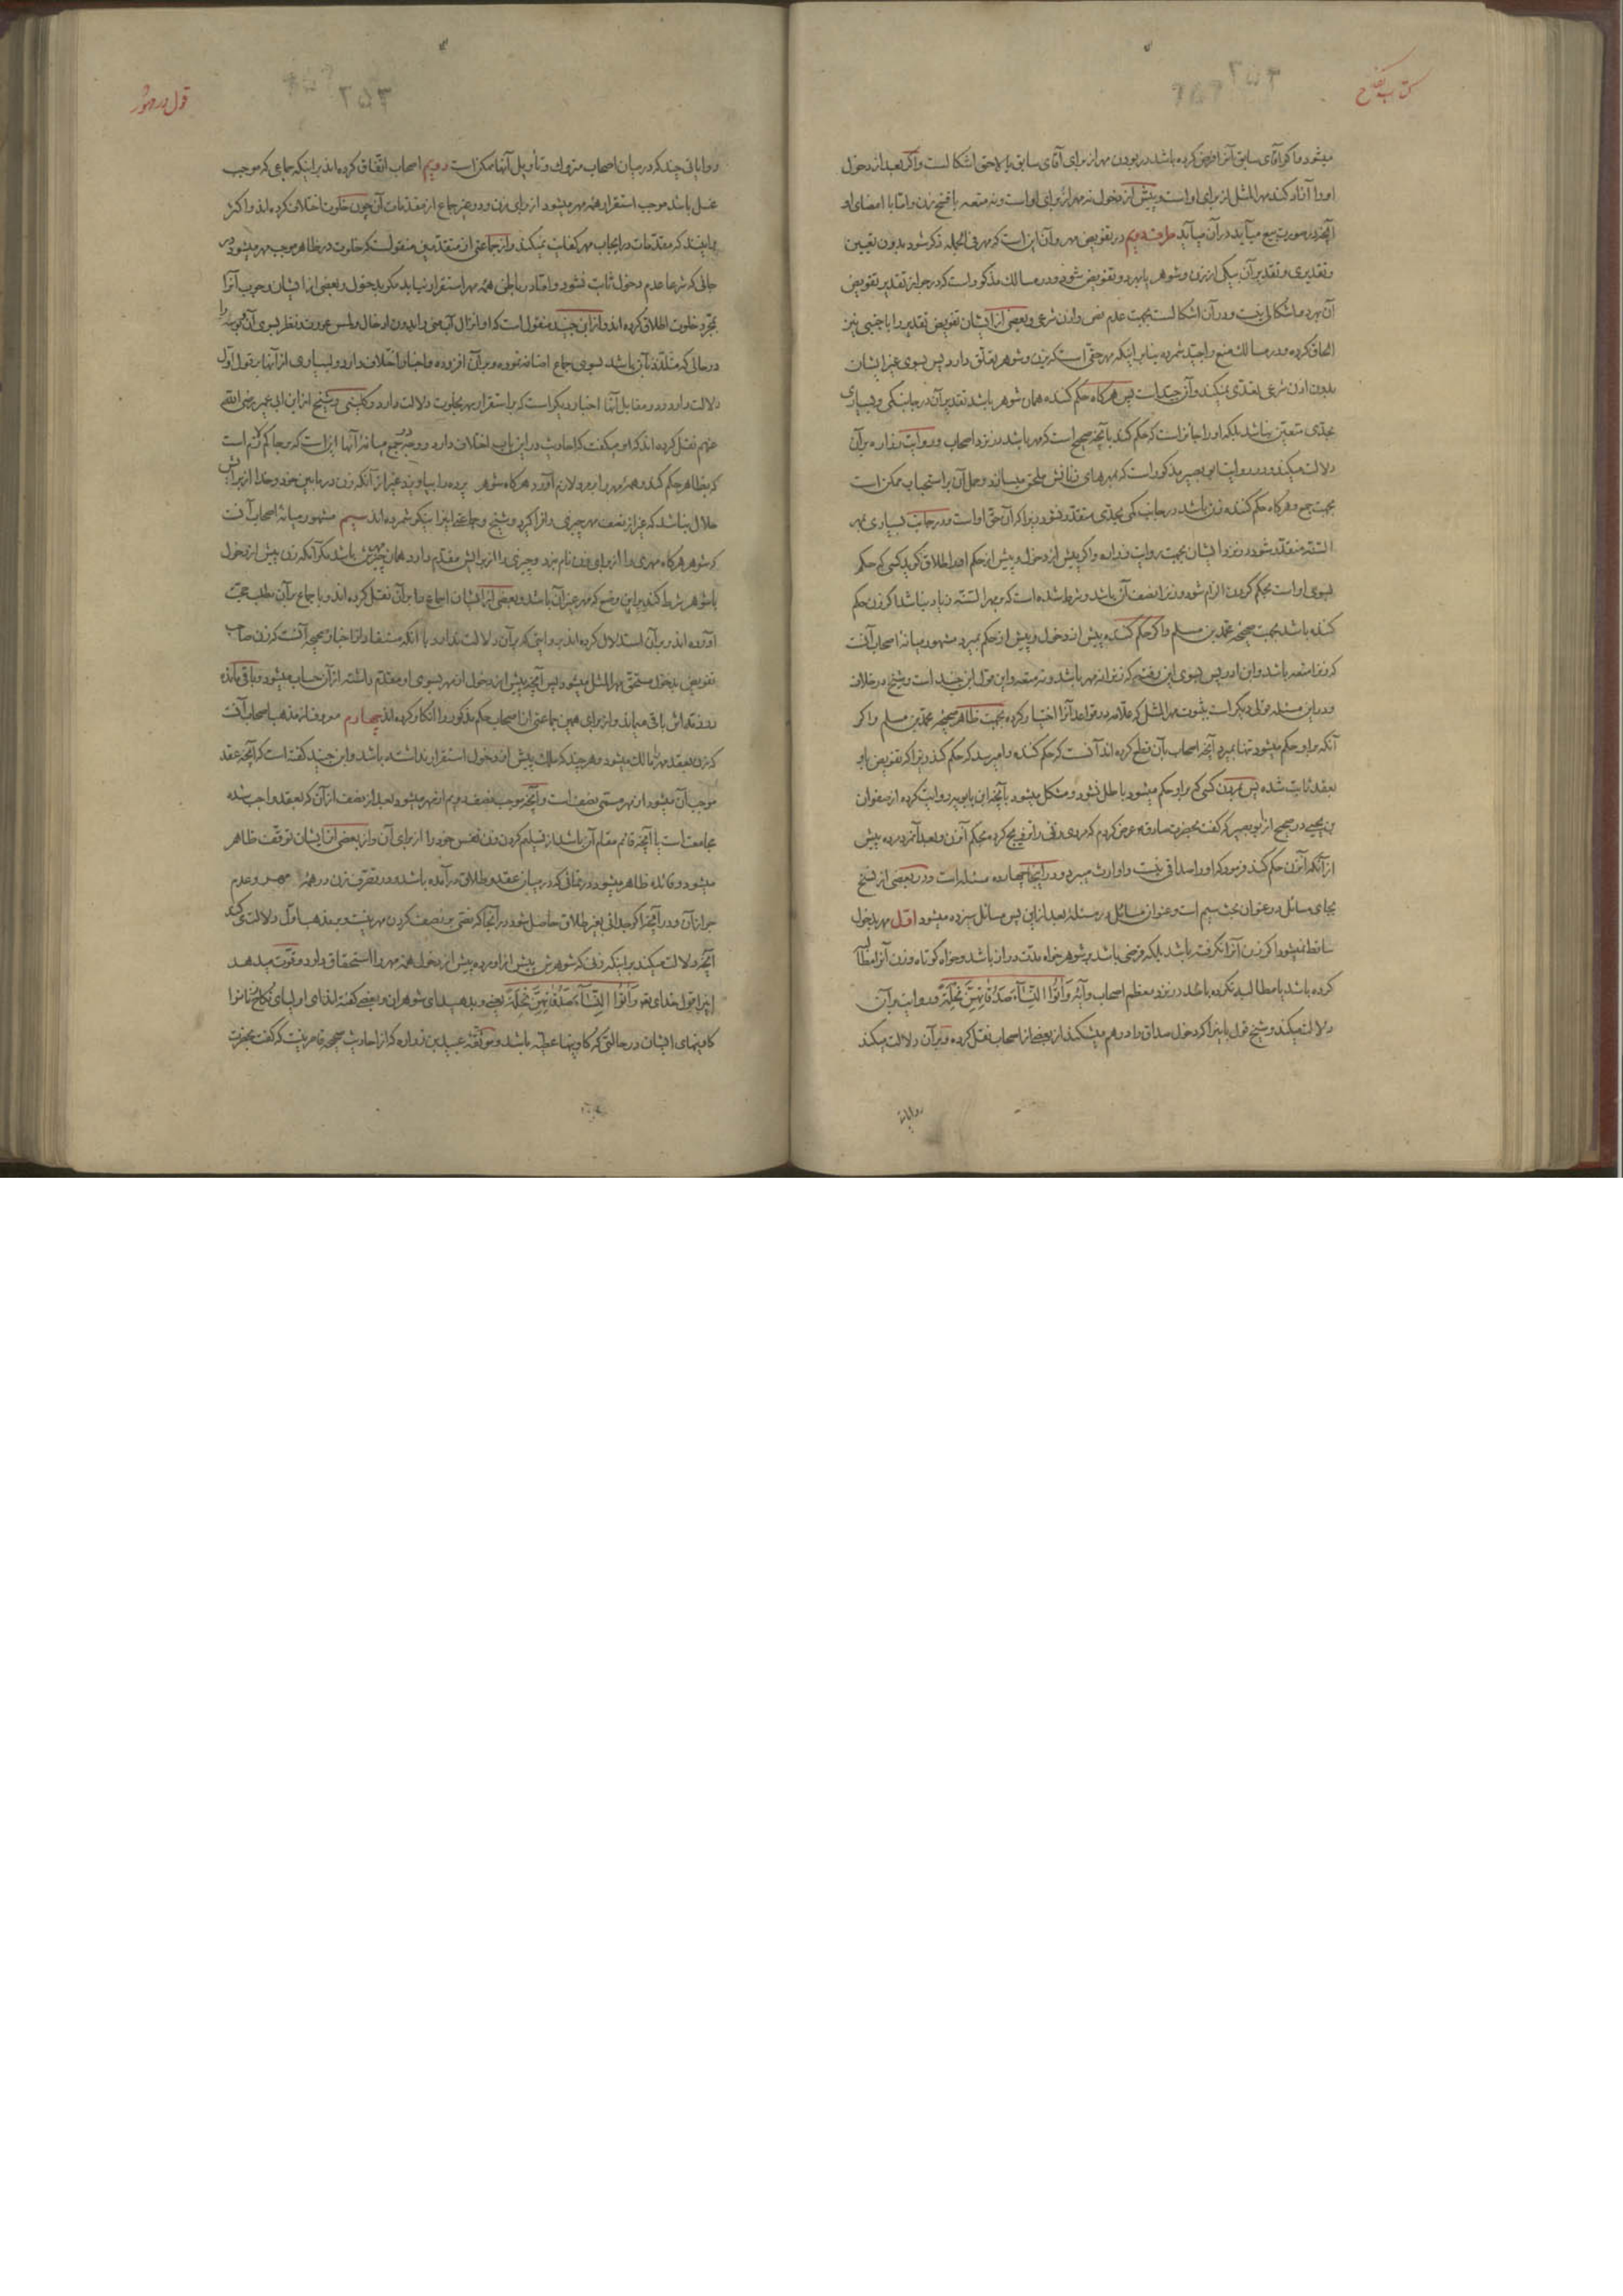 کتاب نکاح
۲۵۳
میشود و اگر آقای سابق آنرا فرض کرده باشد در بودن مهر از برای آقای سابق یا لاحق اشکالست و اگر بعد از دخول
او را آزاد کند مهر المثل از برای او است و پیش از دخول نه مهر از برای او است و نه متعه با فسخ زن و امّا با امضای او
آنچه در صورت بیع میآید در آن میآید طرف دویم در تفویض مهر و آن این است که مهر فی الجمله ذکر شود بدون تعیین
و تقدیری و تقدیر آن بیکی از زن و شوهر یا بهر دو تفویض شود و در مسالك مذکور است که در جواز تقدیر تفویض
آن بهر دو اشکالی نیست و در آن اشکالست بجهت عدم نص و اذن شرعی و بعضی از ایشان تفویض تقدیر را با جنبی نیز
الحاق کرده و در مسالك منع را جیّد شمرده بنا بر اینکه مهر حقّی است که بزن و شوهر تعلّق دارد پس بسوی غیر ایشان
بدون اذن شرعی تعدّی نمیکند و آن جیّد است پس هر گاه حکم کننده همان شوهر باشد تقدیر آن در جانب کمی و بسیاری
بحدّی متعیّن نباشد بلکه او را جائز است که حکم کند بآنچه صحیح است که مهر باشد در نزد اصحاب و روایت زراره بر آن
دلالت میکند و در روایت ابو بصیر مذکور است که بمهرهای زنانش ملحق میسازند و حمل آن بر استحباب ممکن است
بجهت جمع و هر گاه حکم کننده زن باشد در جانب کمی بحدّی متقدّر نشود زیرا که آن حقّ او است و در جانب بسیاری بمهر
السّنّه متقدّر شود در نزد ایشان بجهت روایت زراره و اگر پیش از دخول و پیش از حکم او را طلاق گوید کسی که حکم
بسوی او است بحکم کردن الزام شود و زنرا نصف آن باشد و شرط شده است که بر مهر السّنّه زیاد نباشد اگر زن حکم
کننده باشد بجهت صحیحه محمّد بن مسلم و اگر حکم کننده پیش از دخول و پیش از حکم بمیرد مشهور میانه اصحاب آنست
که زنرا متعه باشد و ابن ادریس بسوی این رفته که زنرا نه مهر باشد و نه متعه و این قول ابن جنید است و شیخ در خلاف
و در این مسئله قولی دیگر است بثبوت مهر المثل که علّامه در قواعد آنرا اختیار کرده بجهت ظاهر صحیحه محمّد بن مسلم و اگر
آنکه بر او حکم میشود تنها بمیرد آنچه اصحاب بآن قطع کرده اند آنست که حکم کننده را میرسد که حکم کند زیرا که تفویض باو
بعقد ثابت شده پس بمردن کسی که بر او حکم میشود باطل نشود و مشکل میشود بآنچه ابن بابویه روایت کرده از صفوان
بن یحیی در صحیح از ابو بصیر که گفت بحضرت صادق ع عرض کردم که مردی زنی را تزویج کرده بحکم آنزن و بعد آنمرد مرده پیش
از آنکه آنزن حکم کند فرمود که او را صداقی نیست و او ارث میبرد و در اینجا چهارده مسئله است و در بعضی از نسخ
بجای مسائل در عنوان بحث سیم است و عنوان مسائل در مسئله بعد از این پس مسائل سیزده میشود اوّل مهر بدخول
ساقط نمیشود اگر زن آنرا نگرفته باشد بلکه قرضی باشد بر شوهر خواه مدّت دراز باشد و خواه کوتاه و زن آنرا مطالبه
کرده باشد یا مطالبه نکرده باشد در نزد معظم اصحاب و آیه وَآتُوا النِّسَاءَ صَدُقَاتِهِنَّ نِحْلَةً و روایت بر آن
دلالت میکند و شیخ قول باینرا که دخول صداق را در هم میشکند از بعضی از اصحاب نقل کرده و بر آن دلالت میکند
روایات
قول در مهور
۲۵۳
روایاتی چند که در میان اصحاب متروك و تأویل آنها ممکن است دویم اصحاب اتّفاق کرده اند بر اینکه جماعی که موجب
غسل باشد موجب استقرار همه مهر میشود از برای زن و در غیر جماع از مقدّمات آن چون خلوت اختلاف کرده اند و اکثر
بر اینند که مقدّمات در ایجاب مهر کفایت نمیکند و از جماعتی از متقدّمین منقولست که خلوت در ظاهر موجب مهر میشود در
جائی که شرعا عدم دخول ثابت نشود و امّا در باطن همه مهر استقرار نیابد مگر بدخول و بعضی از ایشان وجوب آنرا
بمجرّد خلوت اطلاق کرده اند و از ابن جنید منقول است که او انزال آب منی را بدون ادخال و لمس عورت و نظر بسوی آن و بوسه را
در حالی که متلذّذ بآن باشد بسوی جماع اضافه نموده و بر آن افزوده و اخبار اختلاف دارد و بسیاری از آنها بقول اوّل
دلالت دارد و در مقابل آنها اخبار دیگر است که بر استقرار مهر بخلوت دلالت دارد و کلینی و شیخ از ابن ابی عمیر رضی الله
عنهم نقل کرده اند که او میگفت که احادیث در این باب اختلاف دارد و وجه جمع میانه آنها این است که بر حاکم لازم است
که بظاهر حکم کند و همه مهر را بر مرد لازم آورد هر گاه شوهر پرده را بیاویزد غیر از آنکه زن در ما بین خود و خدا از برایش
حلال نباشد که غیر از نصف مهر چیزی را فرا گیرد و شیخ و جماعتی اینرا نیکو شمرده اند سیم مشهور میانه اصحاب آنست
که شوهر هر گاه مهری را از برای زن نام نبرد و چیزی را از برایش مقدّم دارد همان چیز مهرش باشد مگر آنکه زن پیش از دخول
با شوهر شرط کند بر این وضع که مهر غیر آن باشد و بعضی از ایشان اجماع را بر آن نقل کرده اند و با جماع بر آن مطلب حجّت
آورده اند و بر آن استدلال کرده اند بروایتی که بر آن دلالت ندارد با آنکه مستفاد از اخبار صحیحه آنست که زن صاحب
تفویض بدخول مستحقّ مهر المثل میشود پس آنچه پیش از دخول از مهر بسوی او مقدّم داشته از آن حساب میشود و باقی مانده
در ذمّه اش باقی میماند و از برای همین جماعتی از اصحاب حکم مذکور را انکار کرده اند چهارم معروف از مذهب اصحاب آنست
که زن بعقد مهر را مالك میشود و هر چند که ملك پیش از دخول استقرار نداشته باشد و ابن جنید گفته است که آنچه عقد
موجب آن میشود از مهر مسمّی نصف است و آنچه موجب نصف دویم از مهر میشود بعد از نصف از آن که بعقد واجب شده
مجامعت است یا آنچه قائم مقام آن باشد از تسلیم کردن زن نفس خود را از برای آن و از بعضی از ایشان توقّف ظاهر
میشود و فائده ظاهر میشود در نمائی که در میان عقد و طلاق در آمده باشد و در تصرّف زن در همه مهر و عدم
جواز آن و در آنچه اگر جدائی بغیر طلاق حاصل شود در آنجا که نصّی بر نصف کردن مهر نیست و بر مذهب اوّل دلالت میکند
آنچه دلالت میکند بر اینکه زنی که شوهرش پیش از او مرده پیش از دخول همه مهر را استحقاق دارد و قوّت میدهد
اینرا قول خدای تع وَآتُوا النِّسَاءَ صَدُقَاتِهِنَّ نِحْلَةً یعنی و بدهید ای شوهران و بعضی گفته اند ای اولیای نکاح زنانرا
کابینهای ایشان در حالتی که کاوینها عطیّه باشد و موثّقه عبید بن زراره که از احادیث صحیحه قاصر نیست که گفت بحضرت